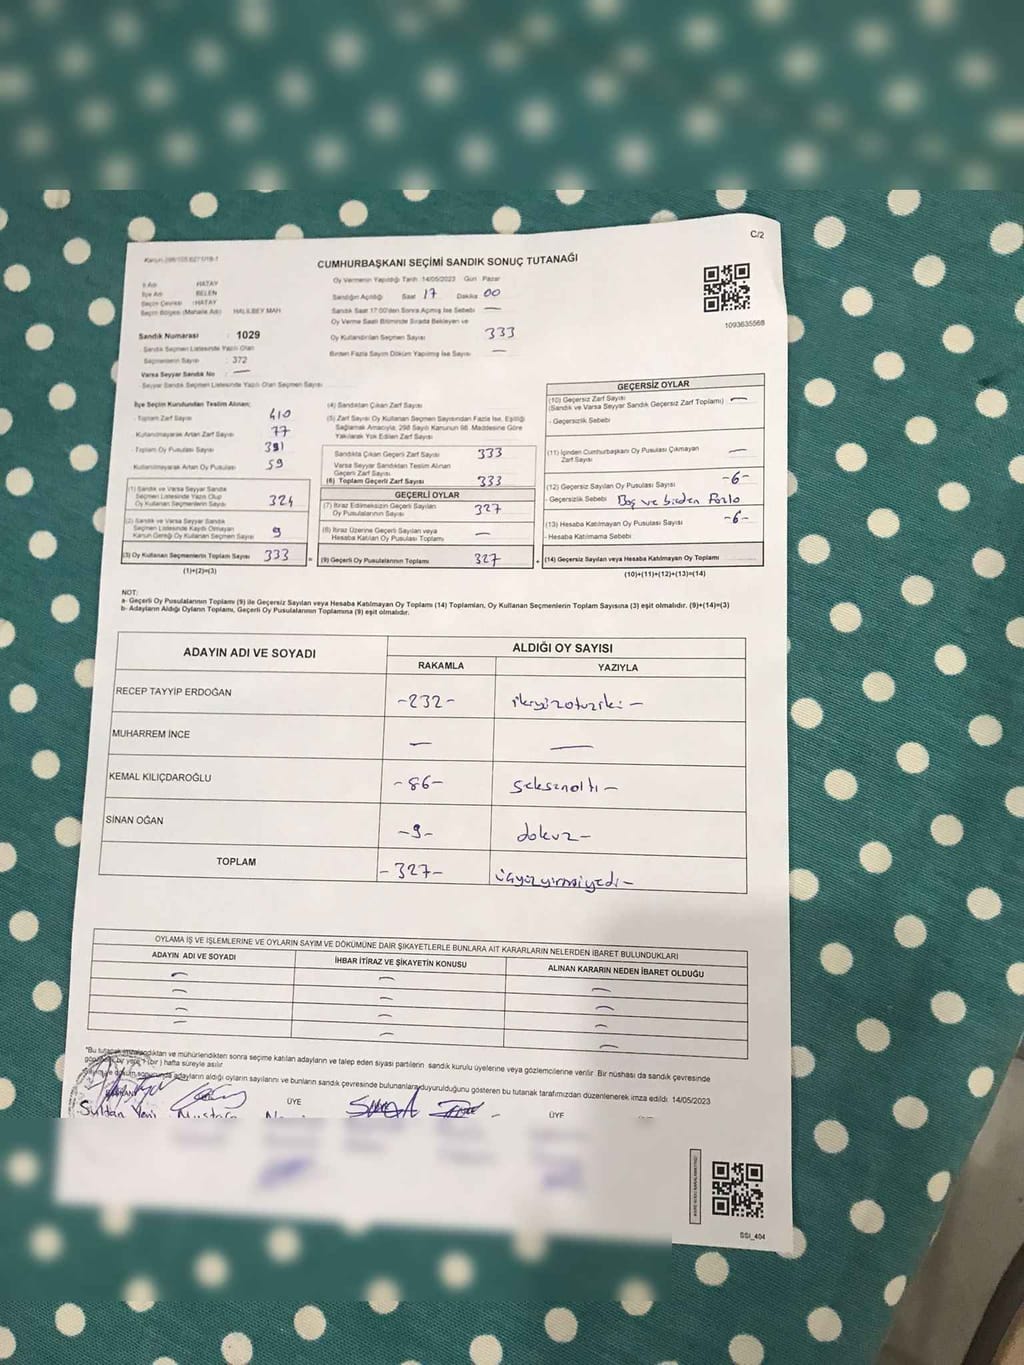 C/2
CUMHURBAŞKANI SEÇİMİ SANDIK SONUÇ TUTANAĞI
1093635568
İl Adı HATAY
İlçe Adı BELEN
Seçim Çevresi : HATAY
Seçim Bölgesi (Mahalle Adı) HALİLBEY MAH
Sandık Numarası : 1029
- Sandık Seçmen Listesinde Yazılı Olan
Seçmenlerin Sayısı : 372
Varsa Seyyar Sandık No : —
- Seyyar Sandık Seçmen Listesinde Yazılı Olan Seçmen Sayısı
Oy Vermenin Yapıldığı Tarih 14/05/2023 Gün Pazar
Sandığın Açıldığı Saat 17 Dakika 00
Sandık Saat 17:00'den Sonra Açılmış İse Sebebi —
Oy Verme Saati Bitiminde Sırada Bekleyen ve
Oy Kullandırılan Seçmen Sayısı 333
Birden Fazla Sayım Döküm Yapılmış İse Sayısı —
İlçe Seçim Kurulundan Teslim Alınan;
- Toplam Zarf Sayısı 410
- Kullanılmayarak Artan Zarf Sayısı 77
- Toplam Oy Pusulası Sayısı
Kullanılmayarak Artan Oy Pusulası 59
(1) Sandık ve Varsa Seyyar Sandık
Seçmen Listesinde Yazılı Olup
Oy Kullanan Seçmenlerin Sayısı 324
(2) Sandık ve Varsa Seyyar Sandık
Seçmen Listesinde Kayıtlı Olmayan
Kanun Gereği Oy Kullanan Seçmen Sayısı 9
(3) Oy Kullanan Seçmenlerin Toplam Sayısı 333
(1)+(2)=(3)
(4) Sandıktan Çıkan Zarf Sayısı
(5) Zarf Sayısı Oy Kullanan Seçmen Sayısından Fazla İse, Eşitliği
Sağlamak Amacıyla, 298 Sayılı Kanunun 98. Maddesine Göre
Yakılarak Yok Edilen Zarf Sayısı
Sandıkta Çıkan Geçerli Zarf Sayısı 333
Varsa Seyyar Sandıktan Teslim Alınan
Geçerli Zarf Sayısı
(6) Toplam Geçerli Zarf Sayısı 333
GEÇERLİ OYLAR
(7) İtiraz Edilmeksizin Geçerli Sayılan
Oy Pusulalarının Sayısı 327
(8) İtiraz Üzerine Geçerli Sayılan veya
Hesaba Katılan Oy Pusulası Toplamı —
= (9) Geçerli Oy Pusulalarının Toplamı 327
GEÇERSİZ OYLAR
(10) Geçersiz Zarf Sayısı —
(Sandık ve Varsa Seyyar Sandık Geçersiz Zarf Toplamı)
- Geçersizlik Sebebi
(11) İçinden Cumhurbaşkanı Oy Pusulası Çıkmayan —
Zarf Sayısı
(12) Geçersiz Sayılan Oy Pusulası Sayısı -6-
- Geçersizlik Sebebi Boş ve birden Fazla
(13) Hesaba Katılmayan Oy Pusulası Sayısı -6-
- Hesaba Katılmama Sebebi
+ (14) Geçersiz Sayılan veya Hesaba Katılmayan Oy Toplamı
(10)+(11)+(12)+(13)=(14)
NOT:
a- Geçerli Oy Pusulalarının Toplamı (9) ile Geçersiz Sayılan veya Hesaba Katılmayan Oy Toplamı (14) Toplamları, Oy Kullanan Seçmenlerin Toplam Sayısına (3) eşit olmalıdır. (9)+(14)=(3)
b- Adayların Aldığı Oyların Toplamı, Geçerli Oy Pusulalarının Toplamına (9) eşit olmalıdır.
ADAYIN ADI VE SOYADI ALDIĞI OY SAYISI
RAKAMLA YAZIYLA
RECEP TAYYİP ERDOĞAN -232- ikiyüzotuziki -
MUHARREM İNCE — —
KEMAL KILIÇDAROĞLU -86- Seksenaltı -
SİNAN OĞAN -9- dokuz -
TOPLAM -327- üçyüzyirmiyedi -
OYLAMA İŞ VE İŞLEMLERİNE VE OYLARIN SAYIM VE DÖKÜMÜNE DAİR ŞİKAYETLERLE BUNLARA AİT KARARLARIN NELERDEN İBARET BULUNDUKLARI
ADAYIN ADI VE SOYADI İHBAR İTİRAZ VE ŞİKAYETİN KONUSU ALINAN KARARIN NEDEN İBARET OLDUĞU
*Bu tutanak imzalandıktan ve mühürlendikten sonra seçime katılan adayların ve talep eden siyasi partilerin sandık kurulu üyelerine veya gözlemcilerine verilir. Bir nüshası da sandık çevresinde
görülebilir bir yere 1 (bir) hafta süreyle asılır.
adayların aldığı oyların sayılarını ve bunların sandık çevresinde bulunanlara duyurulduğunu gösteren bu tutanak tarafımızdan düzenlenerek imza edildi. 14/05/2023
ÜYE ÜYE
Sultan Mustafa
SSI_404